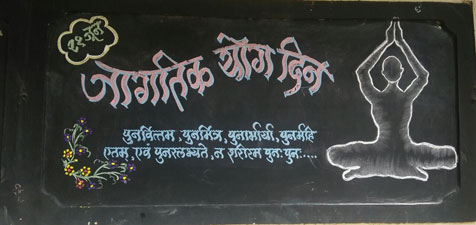 २१ जून
जागतिक योग दिन
पुनर्वित्तम, पुनर्मित्र, पुनर्भार्या, पुनर्मही
एतम, एवं पुनरलभ्यते, न शरीरम पुनः पुनः....